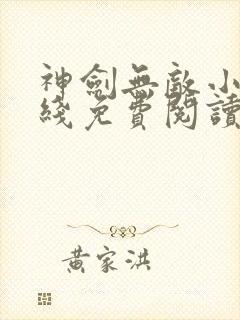 神劍無敵小
綫免費閱讀
黃家洪